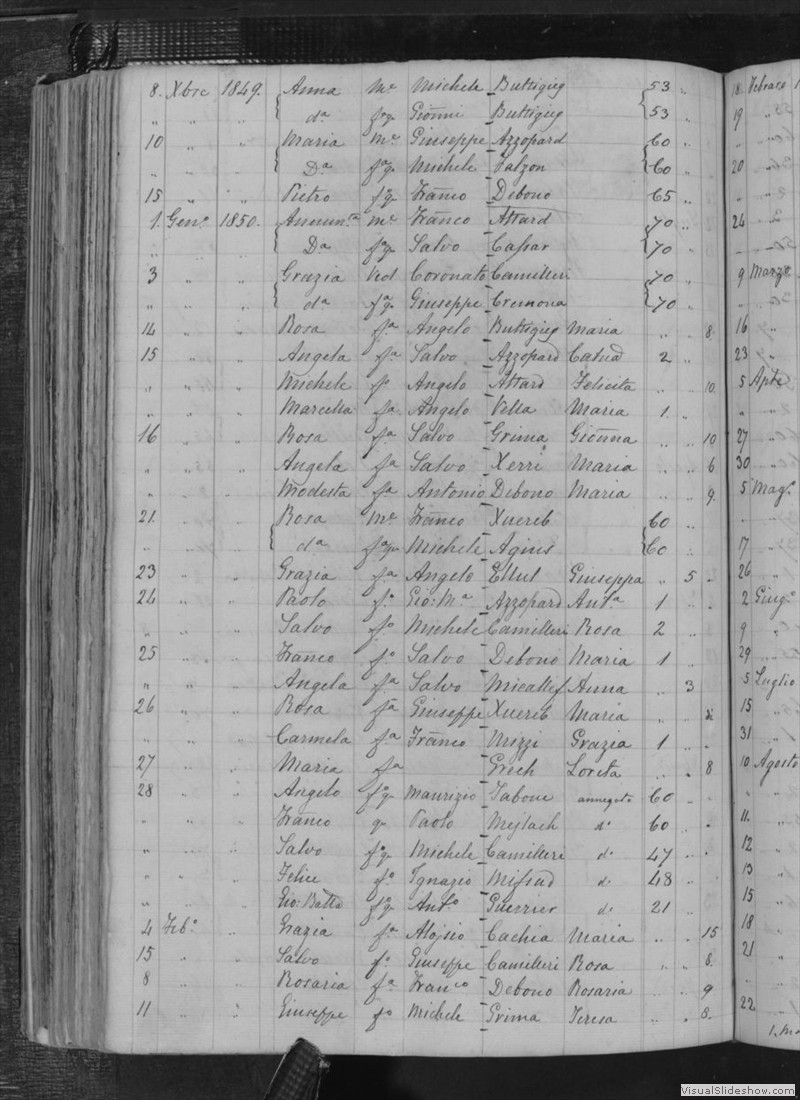 8. Xbre 1849. Anna Me Michele Buttigieg 53 "
" " " da fq Gionni Buttigieg 53 "
10 " " Maria me Giuseppe Azzopard 60 "
" " " Da faq Michele Falzon 60 "
15 " " Pietro fq Franco Debono 65 "
1. Geno 1850. Annunta me Franco Attard 70 "
" Da faq Salvo Cassar 70
3 " " Grazia Ved Coronato Camilleri 70
" " " da faq Giuseppe Cremona 70
14 " " Rosa fa Angelo Buttigieg Maria " " 8.
15 " " Angela fa Salvo Azzopard 2 "
" " " Michele fo Angelo Attard Felicita " " 10.
" " " Marcella fa Angelo Villa Maria 1. " "
16 " " Rosa fa Salvo Grima Gionna " " 10
" " " Angela fa Salvo Xerri Maria " " 6
" " " Modesta fa Antonio Debono Maria " " 9.
21. " " Rosa Me Franco Xuereb 60 "
" " " da faq Michele Agius 60 "
23 " " Grazia fa Angelo Ellul Giuseppa " 5 "
24 " " Paolo fo Gio: Ma Azzopard Anta 1 " "
" " " Salvo fo Michele Camilleri Rosa 2 "
25 " " Franco fo Salvo Debono Maria 1 "
" " " Angela fa Salvo Micallef Anna " 3
26 " " Rosa fa Giuseppe Xuereb Maria " "
" " " Carmela fa Franco Mizzi Grazia 1 " "
27 " " Maria fa Grech Loreta " " 8
28 " " Angelo fq Maurizio Tabone annegato 60 " "
" " " Franco q Paolo Mejlach do 60 " "
" " " Salvo fq Michele Camilleri do 47 " "
" " " Felice fo Ignazio Mifsud do 48 "
" " " Gio: Batta fq Anto Guerrier do 21 "
4 Febo " Grazia fa Alojsio Cachia Maria " " 15
15 " " Salvo fo Giuseppe Camilleri Rosa " " 8.
8 " " Rosaria fa Franco Debono Rosaria " " 9
11 " " Giuseppe fo Michele Grima Teresa " " 8.
18. Febraro
19 "
20 "
24 "
9 Marzo
16 "
23 "
5
27
30
5 Mago
17
26 "
2 Giugo
9 "
29 "
5 Luglio
15 "
31 "
10 Agosto
11. "
12 "
13 "
15 "
18 "
21 "
22 "
VisualSlideshow.com